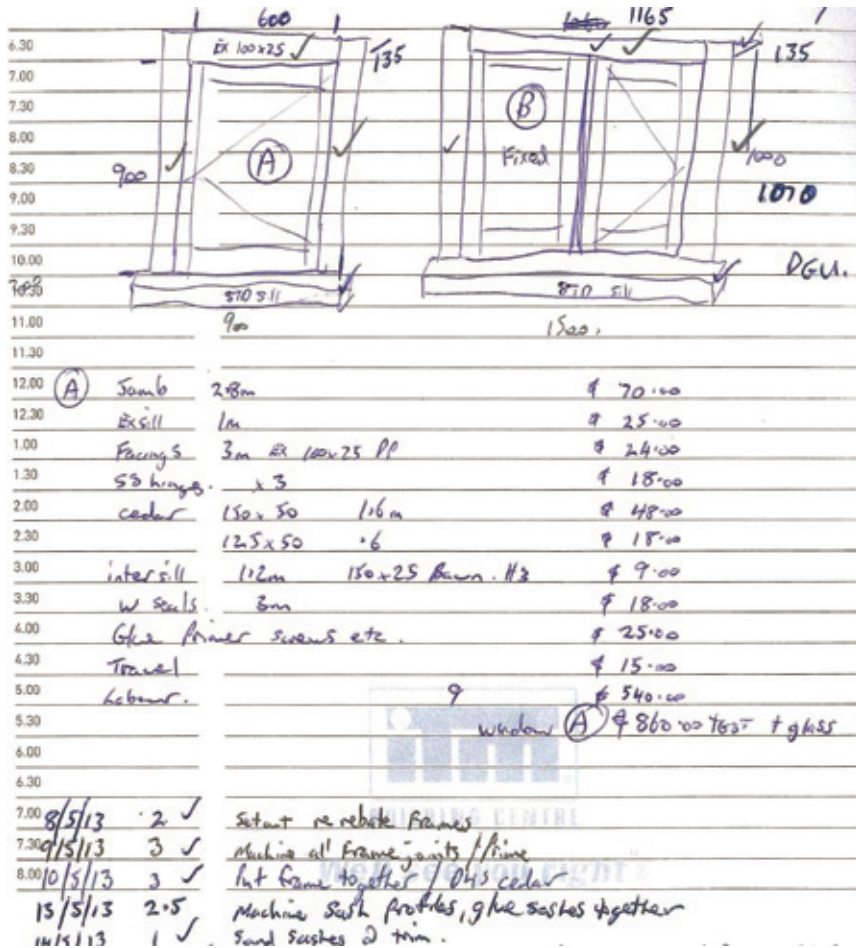 600 1165
6.30 Ex 100x25 135 135
7.00
7.30 B
8.00 Fixed
8.30 900 A 1000
9.00 1070
9.30
10.00 DGU.
10.30 STD sill STD sill
11.00 900 1500.
11.30
12.00 A Jamb 2.8m $ 70.00
12.30 Ex sill 1m $ 25.00
1.00 Facings 3m Ex 100x25 PP $ 24.00
1.30 SS hinges. x 3 $ 18.00
2.00 cedar 150x50 1.6m $ 48.00
2.30 125x50 .6 $ 18.00
3.00 inter sill 1.2m 150x25 H3 $ 9.00
3.30 w seals. 3m $ 18.00
4.00 Glue Primer screws etc. $ 25.00
4.30 Travel $ 15.00
5.00 Labour. 9 $ 540.00
5.30 window A $ 860.00 + GST + glass
6.00 itm
6.30
BUILDING CENTRE
7.00 8/5/13 2 Setout re rebate frames
7.30 9/5/13 3 Machine all frame joints / Prime
We'll see you right
8.00 10/5/13 3 Put frame together / D4S cedar
13/5/13 2.5 Machine sash profiles, glue sashes together
14/5/13 1 Sand sashes & trim.